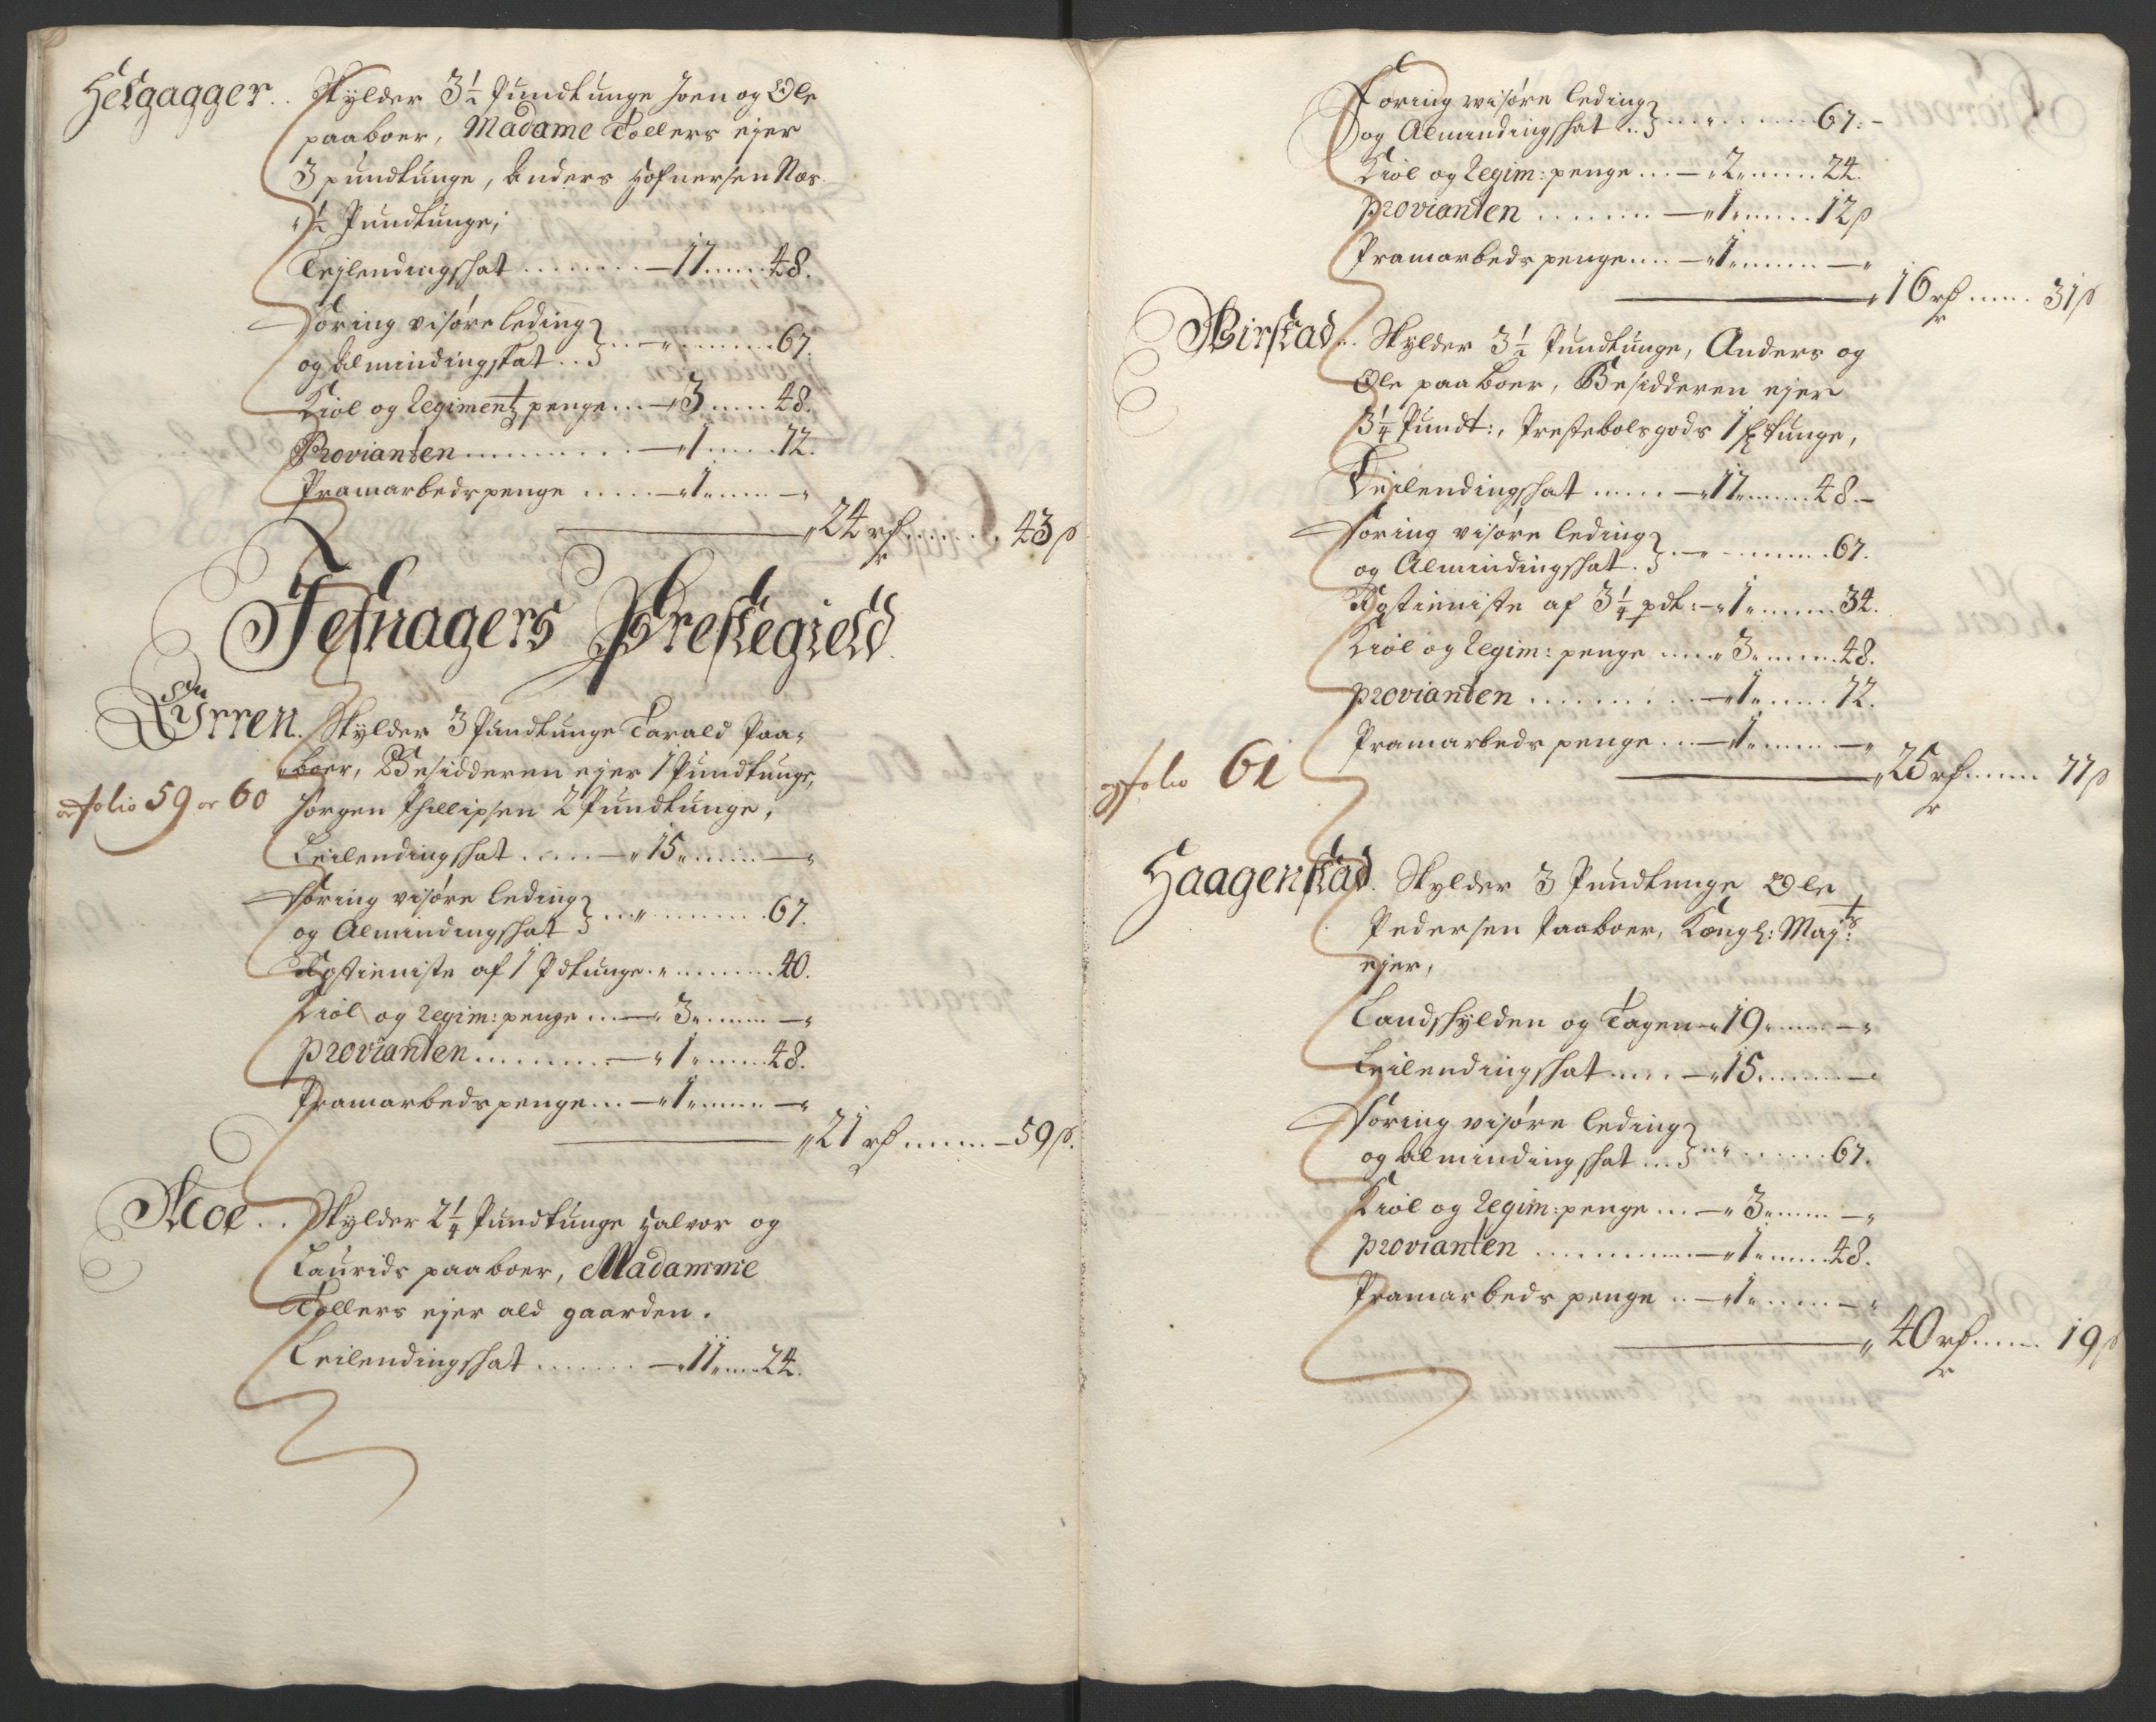 Helgagger.. Skylder 3 1/2 Pundtunge Joen og Ole
paaboer, Madame Tollers ejer
3 pundtunge, Anders Hofnersen Næs
1/2 Pundtunge;
Lejlendingskat ........ — 17 ..... 48.
Foring visøre leding
og Almindingskat .. } ... — " ....... 67.
Kiøl og Regimentz penge ... — 3 ..... 48.
Provianten .......... — 1 ..... 12.
Pramarbedspenge ..... — 1 ..... — "
24 rd ...... 43 ß
Fesnagers Prestegield
Yrren. Skylder 3 Pundtunge Tarald Paa-
boer, Besidderen ejer 1 Pundtunge,
folio 59 or 60 Jørgen Phillipsen 2 Pundtunge,
Leilendingskat ..... — 15 ...... — "
Foring visøre leding
og Almindingskat } ... " ........ 67.
Rostieniste af 1 Pdtunge. " ........ 40.
Kiøl og Regim: penge ... — 3 ...... — "
Provianten ......... — " 1 " ..... 48.
Pramarbedspenge ... — 1 ...... — "
21 rd ...... — 59 ß.
Moe .. Skylder 2 1/4 Pundtunge Halvor og
Laurids paaboer, Madamme
Tollers ejer ald gaarden.
Leilendingskat ....... — 11 .... 24.
Foring visøre leding
og Almindingskat .. } ..... " ...... 67. —
Kiøl og Regim: penge ... — " 2 " ..... 24.
Provianten ........ — " 1 " ..... 12 ß
Pramarbeds penge .... — " 1 " ..... — "
16 rd ..... 31 ß
Birstad .. Skylder 3 1/2 Pundtunge, Anders og
Ole paaboer, Besidderen ejer
3 1/4 Pundt:, Prestebolsgods 1 tunge,
Leilendingskat ..... — " 17 " ..... 48. —
Foring visøre leding
og Almindingskat . } .. — " ....... 67.
Rostieniste af 3 1/4 pdt: — " 1 " ..... 34.
Kiøl og Regim: penge .... " 3 " ..... 48.
Provianten .......... — 1 " ..... 12.
Pramarbeds penge ... — 1 " ..... — "
folio 61
25 rd ..... 77 ß
Haagenstad. Skylder 3 Pundtunge Ole
Pedersen Paaboer, Kongl: Mayts:
ejer,
Landskylden og Tagen — " 19 " ..... — "
Leilendingskat ..... — " 15 ........ — "
Foring visøre leding
og Almindingskat ... } .. " ...... 67.
Kiøl og Regim: penge ... — " 3 " ..... — "
Provianten ........... — " 1 " ..... 48.
Pramarbeds penge .. — 1 " ..... — "
40 rd ..... 19 ß